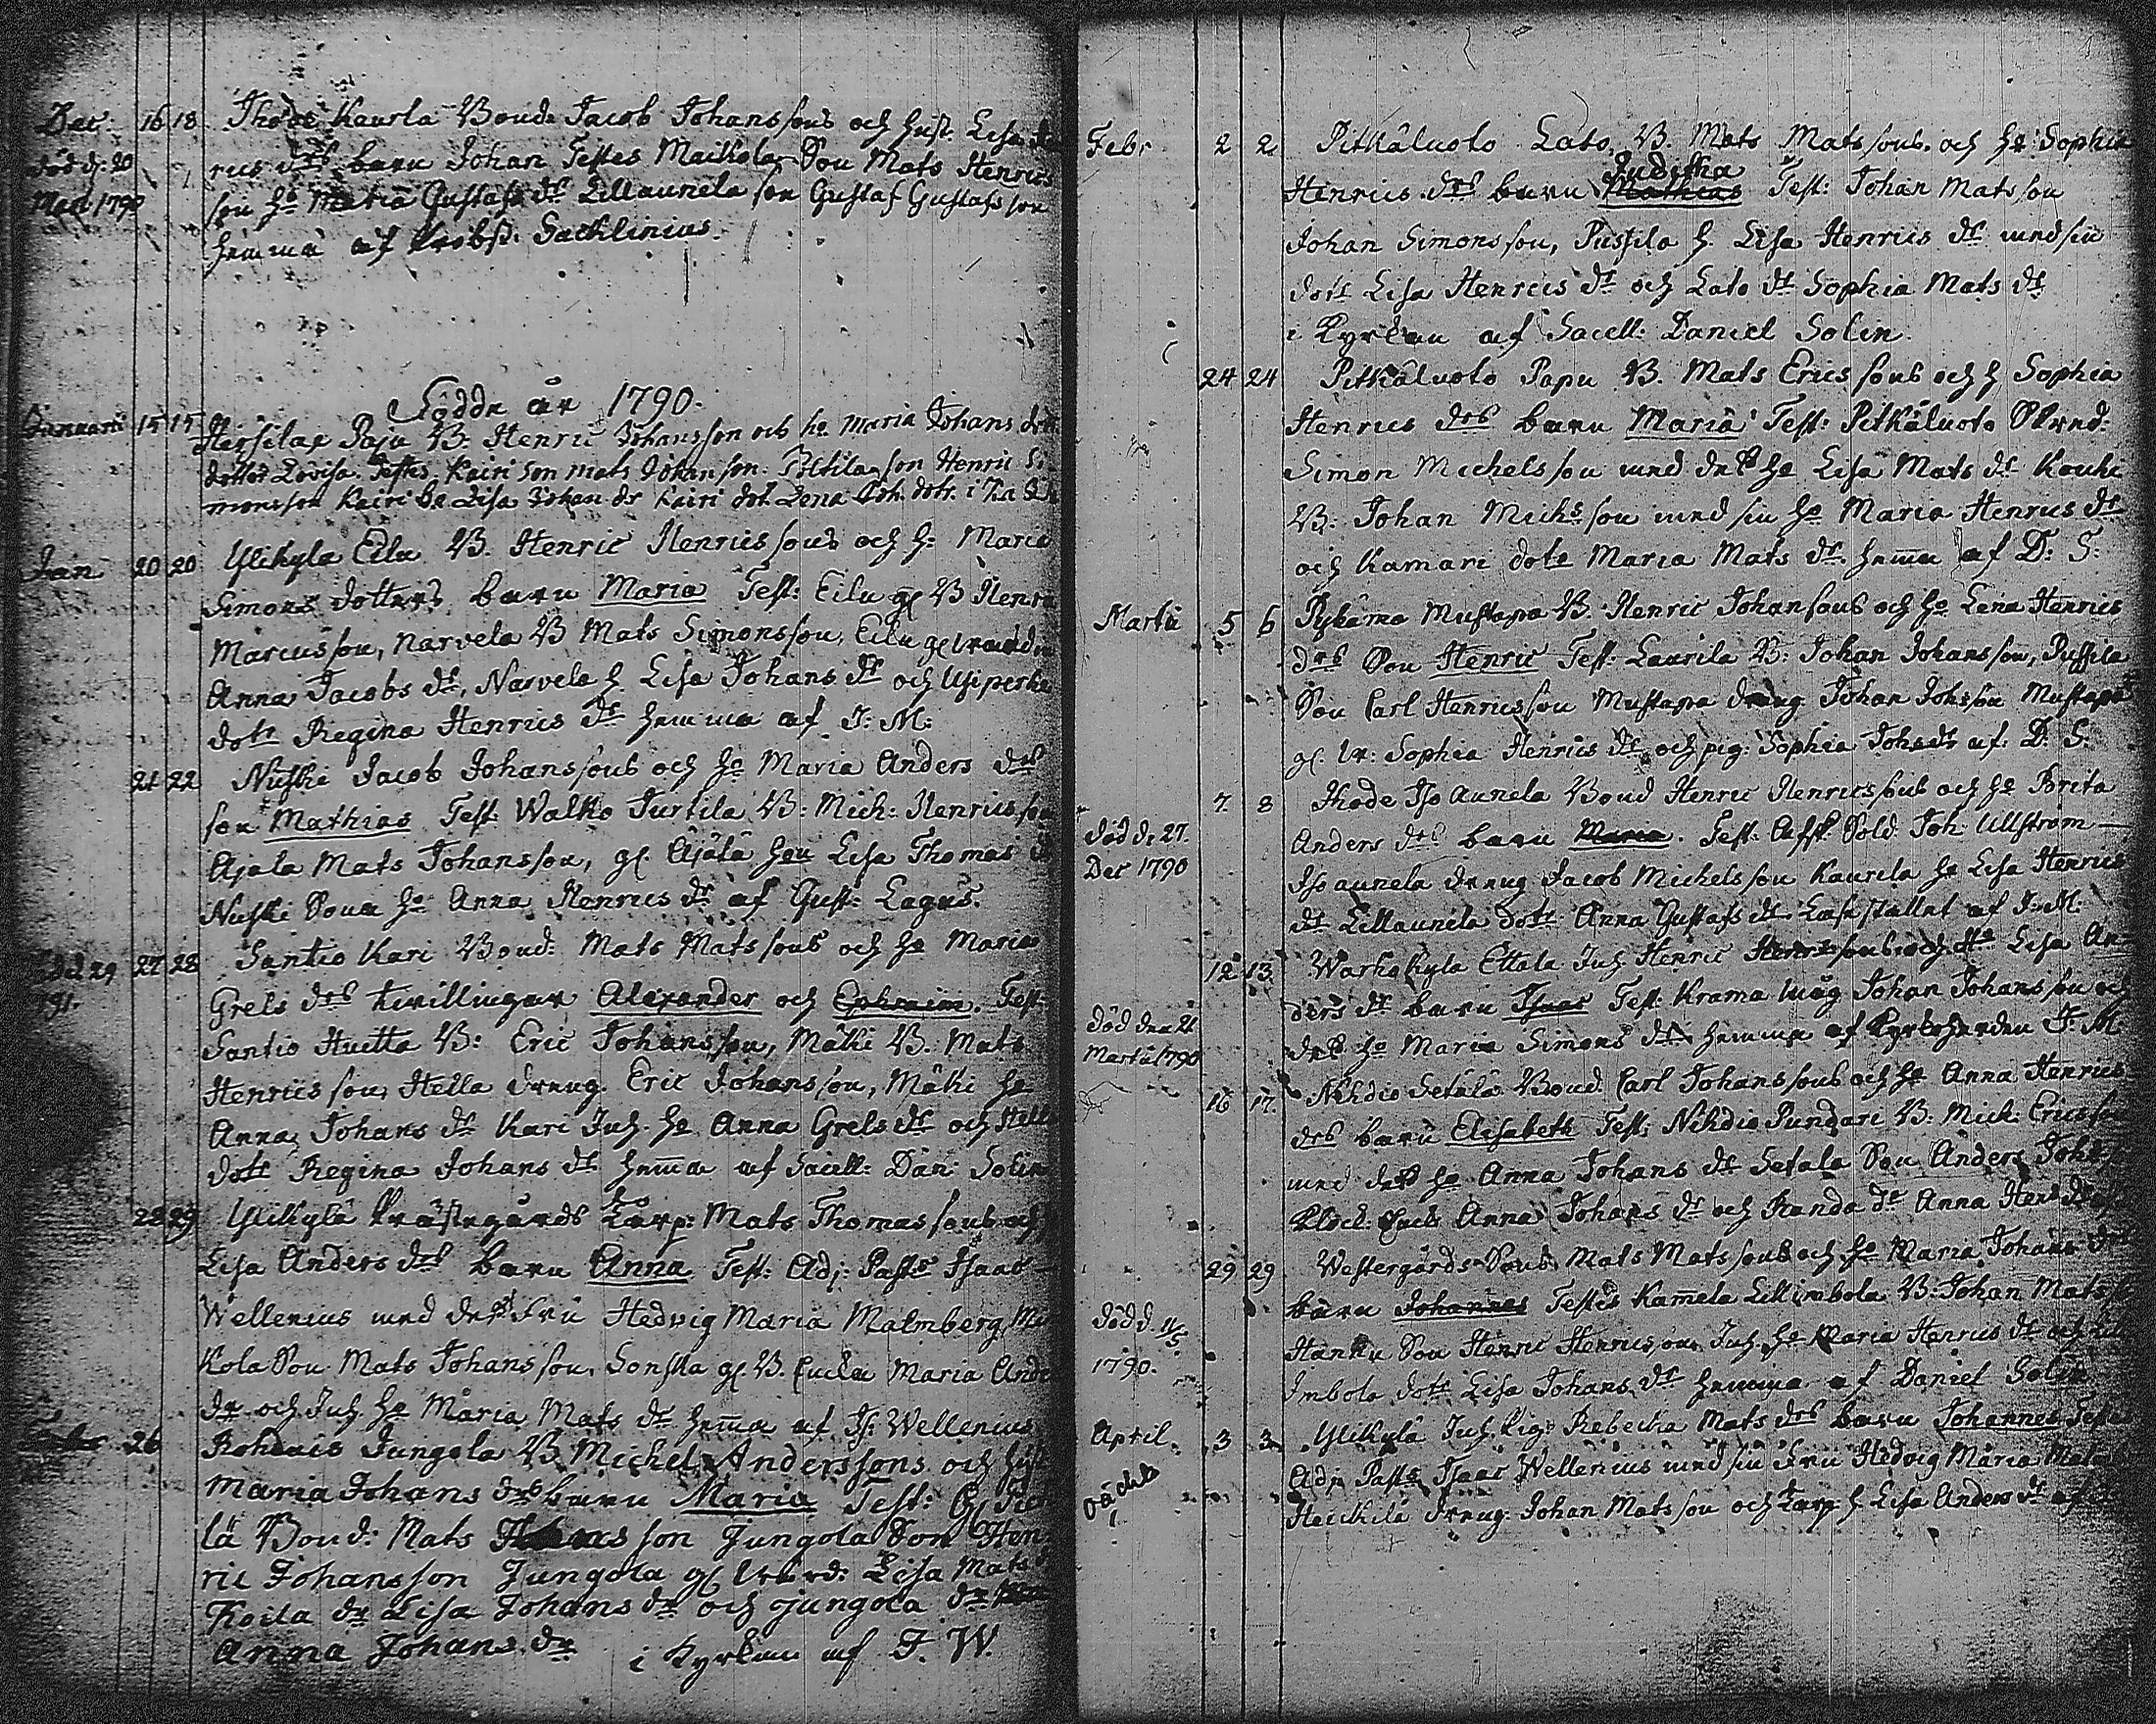 Dec. 16 18 Thode Kaurla Bonde Jacob Johanssons och Hust. Lisa
död d: 20 rics drs barn Johan Testes Maikola Son Mats Henrics
Mart 1790 son Ho Maria Gustafs dr Lillaunela son Gustaf Gustafsson
hemma af Probst. Sacklinius.
Födde år 1790.
Januarii 15 15 Heissilae Paju B. Henric Johansson och ho Maria Johans
dotter Lovisa. Testes, Kairi Son Mats Johansson. Son Henric Si
monsson Kairi ho Lisa Johan dr Kairi dot. Lena Joh. dotr. i
Jan 20 20 Ylikylä Eilu B. Henric Henricssons och h: Maria
Simons dotters barn Maria Test: Eilu gl B Henric
Marcusson, Narvela B Mats Simonsson, Eilu gl
Anna Jacobs dr, Narvela h Lisa Johans dr och
dotr Regina Henrics dr hemma af J: M:
21 22 Nuski Jacob Johanssons och ho Maria Anders drs
son Mathias Test: Walko Turtila B: Mich: Henricsson
Ajala Mats Johansson, gl. Äjälä Lisa Thomas dr
Nuski Sona ho Anna Henrics dr af Gust: Lagus.
27 28 Santio Kari Bond: Mats Matssons och ho Maria
Grels drs twillingar Alexander och Ephraim. Test:
91. Santio Huitta B: Eric Johansson, Mäki B. Mats
Henricsson, Hella dreng. Eric Johansson, Mäki ho
Anna Johans dr Kari Inh. ho Anna Grels dr och Hella
dotr Regina Johans dr hemma af Sacell: Dan: Solin
28 29 Ylikylä Prästegårds Torp: Mats Thomassons och
Lisa Anders drs barn Anna Test: Adj: Past: Isaac
Wellenius med des Fru Hedvig Maria Malmberg,
Kola Son Mats Johansson, Sonska gl. B. Maria
dr och Inh ho Maria Mats dr hemma af Js: Wellenius
26 Rohdais Jungola B Michel Anderssons och
Maria Johans drs barn Maria Test: Gl
lä Bond: Mats son Jungola Son Hen
ric Johansson Jungola gl Lisa Mats
Koila dr Lisa Johans dr och Jungola dr
Anna Johans dr i Kyrkan af J. W.
Febr 2 2 Pitkäluoto Lato B. Mats Matssons, och ho Sophia
Juditha
Henrics drs barn Mathias Test: Johan Matsson
Johan Simonsson, Pussila h. Lisa Henrics dr med sin
dotr Lisa Henrics dr och Lato dr Sophia Mats dr
i Kyrkan af Sacell: Daniel Solin.
24 24 Pitkäluoto Papu B. Mats Ericssons och h Sophia
Henrics drs barn Maria Test: Pitkäluoto
Simon Michelsson med des ho Lisa Mats dr Kouhi
B: Johan Michsson med sin ho Maria Henrics dr
och Kamari dotr Maria Mats dr. hemma af D: S:
Martii 5 6 Pyhämo Mustapa B. Henric Johanssons och ho Lena Henrics
drs Son Henric Test: Laurila B: Johan Johansson, Pussila
Son Carl Henricsson Mustapa dreng Johan Johsson Mustapa
gl. Sophia Henrics dr och pig: Sophia Johsdr af. D: S:
7. 8 Thode Iso aunela Bond Henric Henricssons och ho Brita
död d: 27. Anders drs barn Maria. Test: Afsk. Sold Joh. Ullström
Dec 1790 Isoaunela dreng Jacob Michelsson Kaurila ho Lisa Henrics
dr Lillaunela dotr: Anna Gustafs dr af J: M:
12 13 Warhokylä Ettala Inh. Henric Henricssons och Ho Lisa An
ders dr barn Isaac Test: Krama Johan Johansson och
död den 21 des ho Maria Simons dr hemma af Kyrkoherden J: M
Martii 1790
16 17. Nihdio Setälä Bond Carl Johanssons och ho Anna Henrics
drs barn Elisabeth Test: Nihdio Pundari B: Mich: Ericsson
med des ho Anna Johans dr Setala Son Anders Joh
Anna Johans dr och Randa dr Anna Hens dr
29 29 Westergårds Sons Mats Matssons och ho Maria Johans drs
barn Johannes Testes Kamela Lillimbola B: Johan Mats
död d 11/5. Son Henric Henricsson, Inh. ho Maria Henrics dr och
1790. Imbola dotr Lisa Johans dr hemma af Daniel Solin
April. 3 3 Ylikylä Inh. Pig: Rebecka Mats drs barn Johannes Testes
Oächta Adj: Past: Isaac Wellenius med sin Fru Hedvig Maria
Heickilä dreng. Johan Matsson och Torp h Lisa Anders dr af